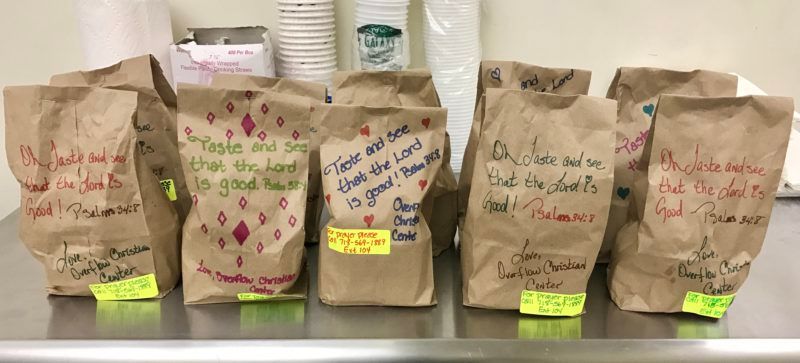 400 Per Box
7 ¾"
Individually Wrapped
Flexible Drinking Straws
Oh Taste and see
that the Lord is
Good! Psalms 34:8
Love, Overflow Christian
Center
For prayer please
call 718-569-1889
Ext 104
Taste and see
that the Lord
is good. Psalm 38:4
Love, Overflow Christian
Center
Taste and see
that the Lord
is good! Psalm 34:8
Christian
Center
For prayer please
Call 718-569-1889
Ext 104
and
Lord
Oh Taste and see
that the Lord is
Good! Psalms 34:8
Love,
Overflow Christian
Center
For prayer please
Call 718-569-1889
Ext 104
Taste
Oh Taste and see
that the Lord is
Good Psalms 34:8
Love,
Overflow Christian
Center
For prayer please
Ext 104